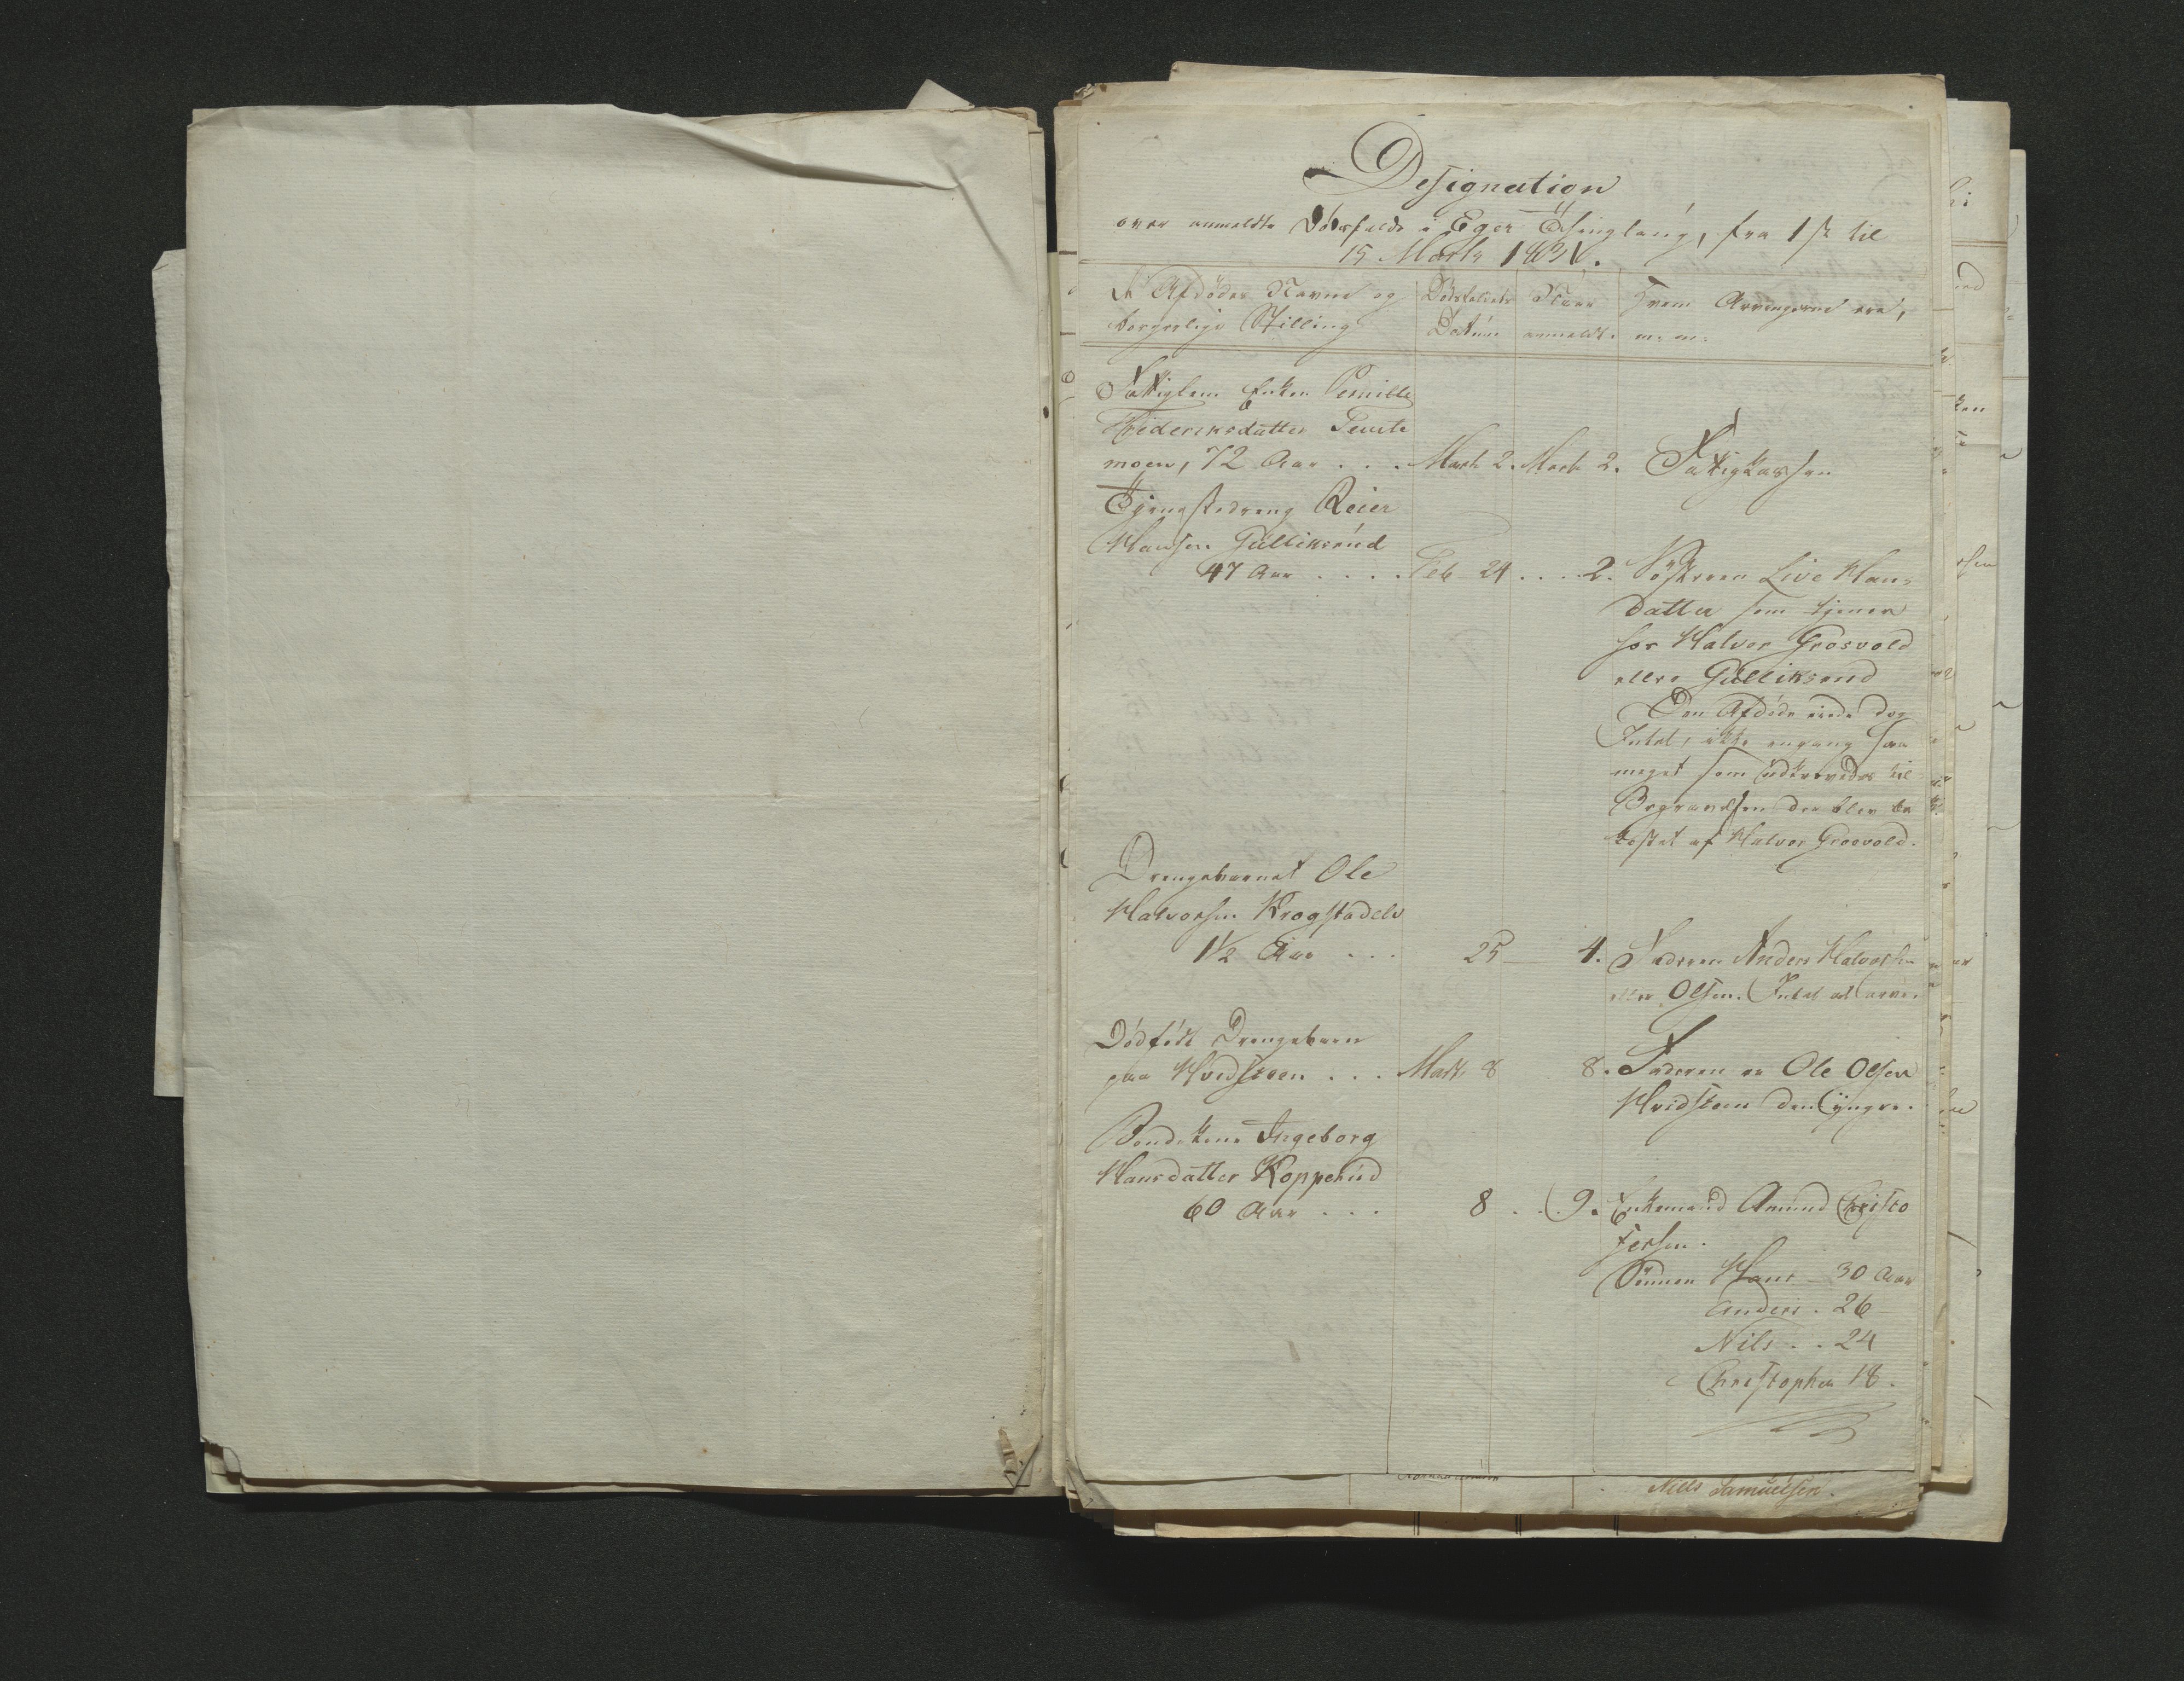 Designation
over anmeldte Dödsfald i Eger Thinglaug, fra 1ste til
15 Marts 1831.
De Afdödes Navne og
borgerlige Stilling
Dödsfaldets
Datum
Naar
anmeldt.
Hvem Arvingerne ere,
m: m:
Fattiglem Enken Pernille
Frideriksdatter Teuste
moen, 72 Aar . . . Marts 2. Marts 2. Fattigkassen
Tjenestedreng Reier
Hansen Gulliksrud
47 Aar . . . . Feb 24 . . . . 2. Sösteren Live Hans
datter som tjener
hos Halvor Grosvold
eller Gulliksrud
Den Afdöde eiede dog
Intet, ikke engang saa
meget som udkrævedes til
Begravelsen der blev be
kostet af Halvor Grosvold.
Drengebarnet Ole
Halvorsen Krogstadelv
1½ Aar . . . 25 4. Faderen Anders Halvorsen
eller Olsen. Intet at arve.
Dödfödt Drengebarn
paa Hvidsteen . . . Marts 8 8. Faderen er Ole Olsen
Hvidsteen den yngre.
Bondekone Ingeborg
Hansdatter Kopperud
60 Aar . . . 8 . . . 9. Enkemand Amund Christo
fersen.
Sönner Hans 30 Aar
Anders . 26
Nils . . 24
Christopher 18.
Niels Samuelsen.